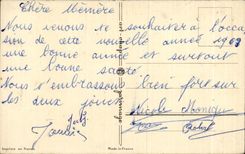 Chère Mémère
Nous venons te souhaiter à l'occa
sion de cette nouvelle année 1963
une bonne année et surtout
une bonne santé
Nous t'embrassons bien fort sur
les deux joues
Nicole Monique
Imprimé en France
Made in France